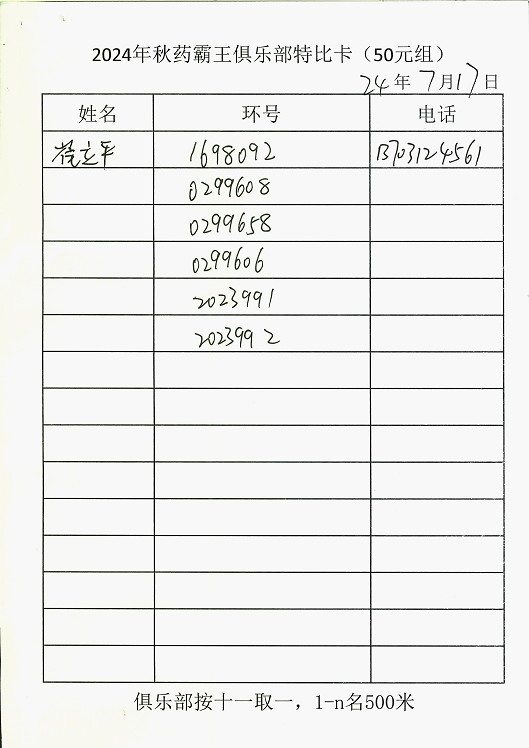 2024年秋药霸王俱乐部特比卡（50元组）
24年7月17日
姓名 环号 电话
立平 1698092 13703124561
0299608
0299658
0299606
2023991
2023992
俱乐部按十一取一，1-n名500米